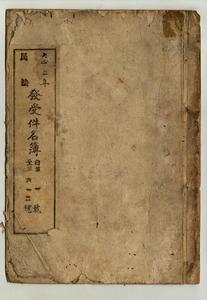 大正二年
民
發受件名簿
自第一號
至第六一三號